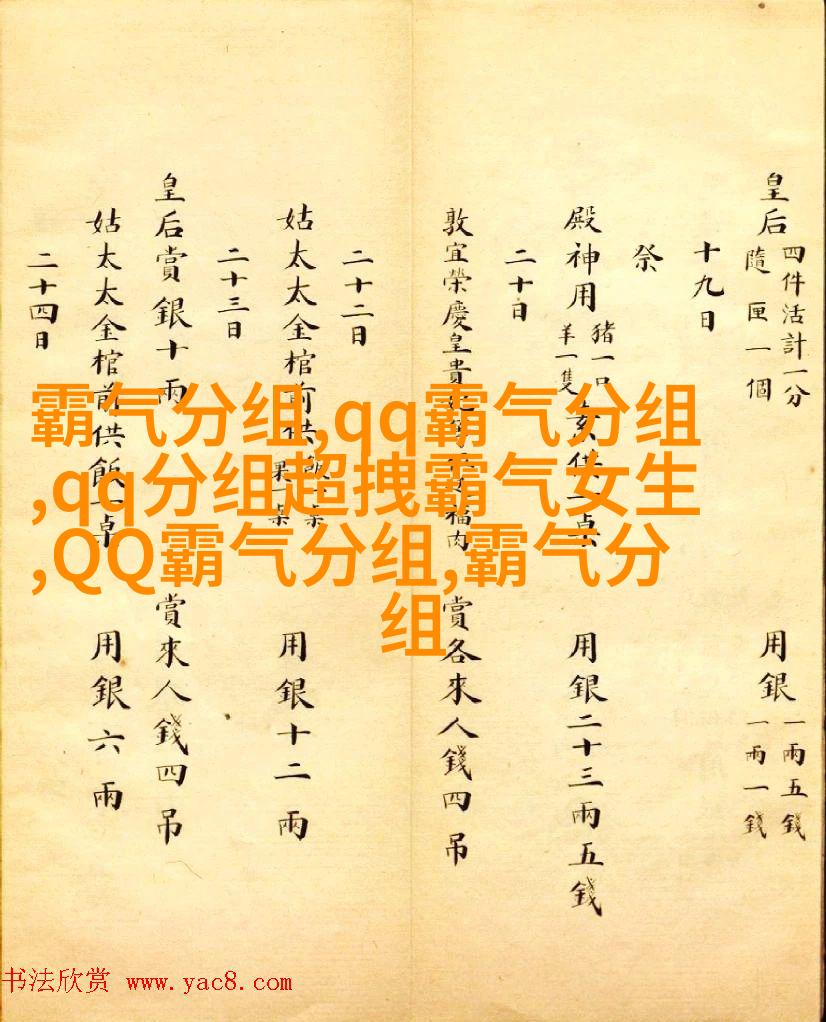 皇后 四件活計一分 隨匣一個 用銀 一兩五錢 一兩一錢
十九日
祭
殿神用 猪一口 羊一隻 供一桌 用銀二十三兩五錢
二十日
敦宜榮慶皇貴 福肉 賞各來人錢四吊
二十二日
姑太太金棺前供飯一桌 果一桌 用銀十二兩
二十三日
皇后賞銀十兩 賞來人錢四吊
姑太太金棺前供飯一桌 用銀六兩
二十四日
霸气分组,qq霸气分组
,qq分组超拽霸气女生
,QQ霸气分组,霸气分
组
书法欣赏 www.yac8.com